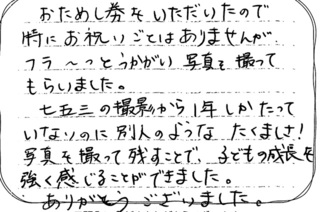 おためし券をいただいたので
特にお祝いごとはありませんが
フラ〜っとうかがい写真を撮って
もらいました。
七五三の撮影から1年しかたって
いないのに別人のような たくましさ!
写真を撮って残すことで、子どもの成長を
強く感じることができました。
ありがとうございました。